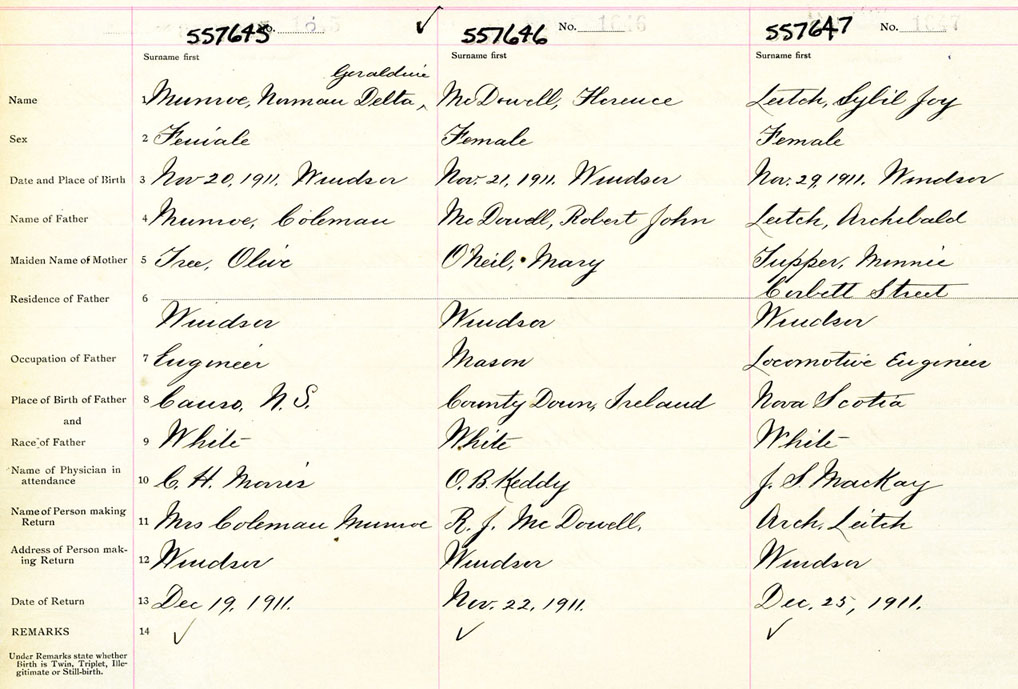 557645 No. 1645 557646 No. 1646 557647 No. 1647
Surname first Surname first Surname first
Geraldine
Name 1 Munroe, Norman Delta ^ McDowell, Florence Leitch, Sybil Joy
Sex 2 Female Female Female
Date and Place of Birth 3 Nov 20, 1911. Windsor Nov. 21, 1911. Windsor Nov. 29, 1911. Windsor
Name of Father 4 Munroe, Coleman McDowell, Robert John Leitch, Archibald
Maiden Name of Mother 5 Tree, Olive O'Neil, Mary Tupper, Minnie
Corbett Street
Residence of Father 6
Windsor Windsor Windsor
Occupation of Father 7 Engineer Mason Locomotive Engineer
Place of Birth of Father 8 Canso, N.S. County Down, Ireland Nova Scotia
and
Race of Father 9 White White White
Name of Physician in
attendance 10 C. H. Morris O. B. Keddy J. S. MacKay
Name of Person making
Return 11 Mrs Coleman Munroe R. J. McDowell, Arch. Leitch
Address of Person mak-
ing Return 12 Windsor Windsor Windsor
Date of Return 13 Dec 19, 1911. Nov. 22, 1911. Dec. 25, 1911.
REMARKS 14 ✓ ✓ ✓
Under Remarks state whether
Birth is Twin, Triplet, Ille-
gitimate or Still-birth.